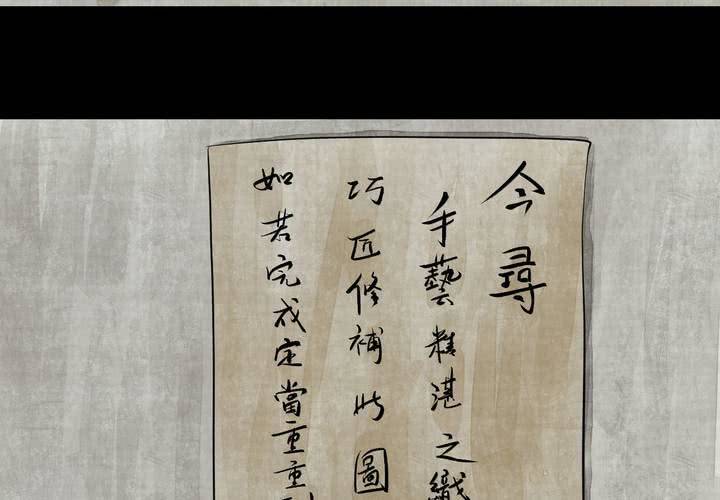 今尋
手藝精湛之織
巧匠修補此圖
如若完成定當重重